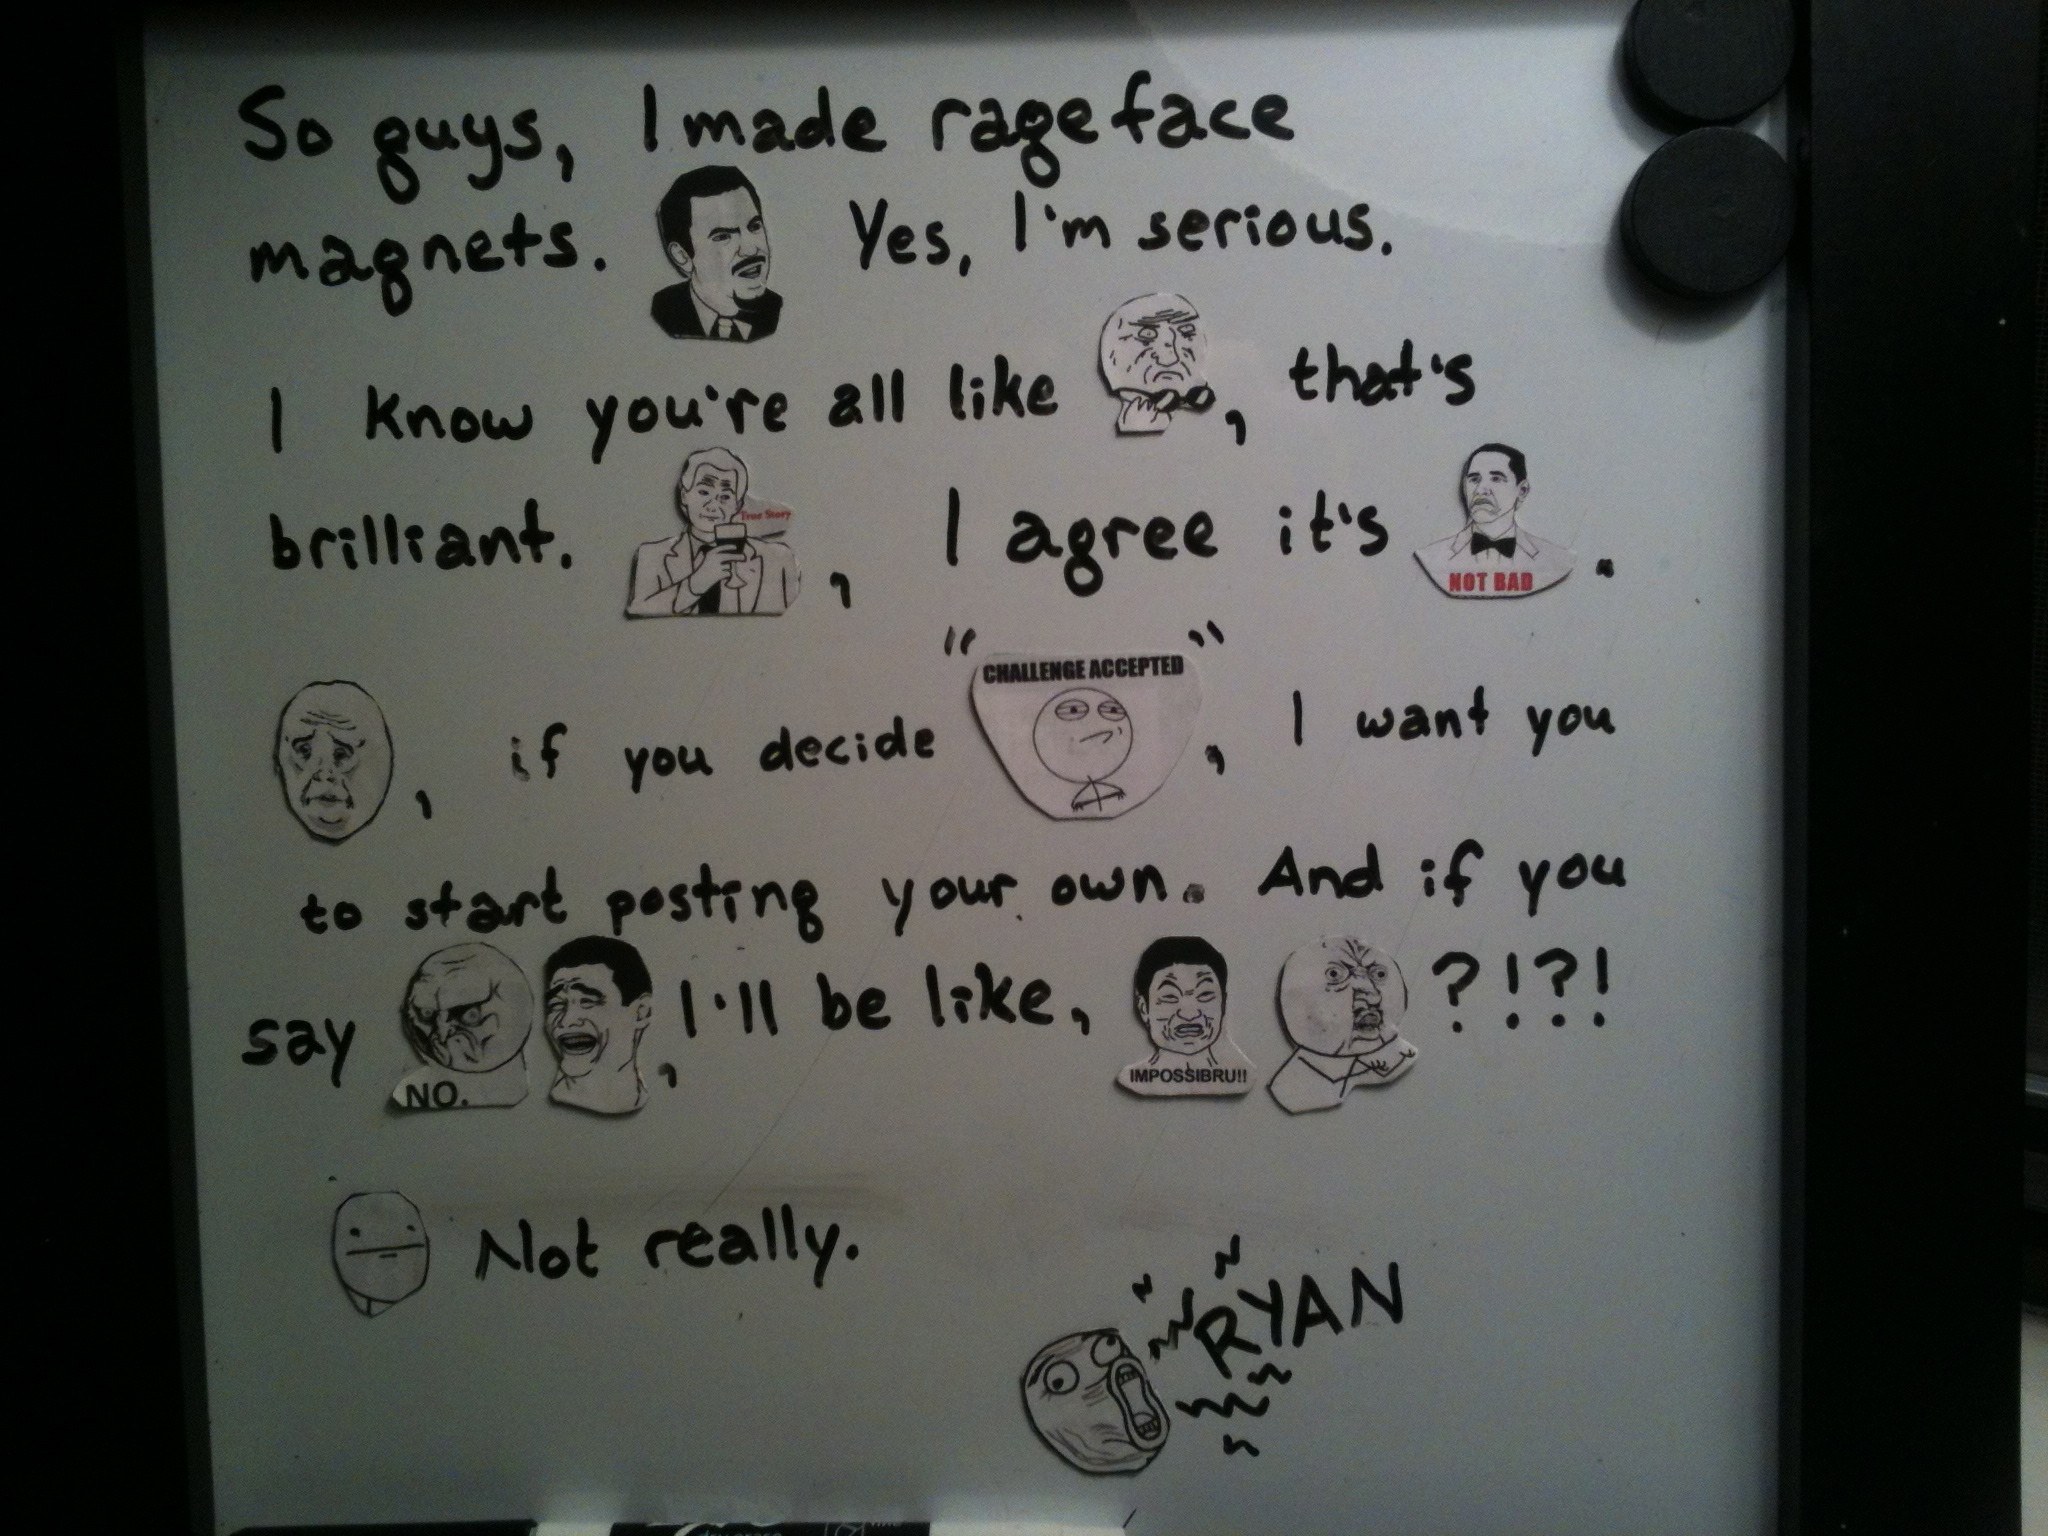 So guys, I made rage face
magnets. Yes, I'm serious.
I know you're all like , that's
brilliant. True Story , I agree it's NOT BAD .
, if you decide "CHALLENGE ACCEPTED", I want you
to start posting your own. And if you
say NO. , I'll be like, IMPOSSIBRU!! ?!?!
Not really.
RYAN